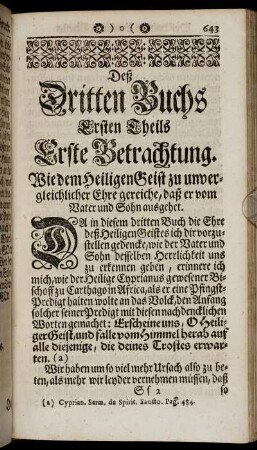 )o( 643
Deß
Dritten Buchs
Ersten Theils
Erste Betrachtung.
Wie dem Heiligen Geist zu unver-
gleichlicher Ehre gereiche, daß er vom
Vater und Sohn ausgehet.
DA in diesem dritten Buch die Ehre
deß Heiligen Geistes ich dir vorzu-
stellen gedencke, wie der Vater und
Sohn desselben Herrlichkeit uns
zu erkennen geben, erinnere ich
mich, wie der Heilige Cyprianus gewesener Bi-
schoff zu Carthago in Africa, als er eine Pfingst-
Predigt halten wolte an das Volck, den Anfang
solcher seiner Predigt mit diesen nachdencklichen
Worten gemacht: Erscheine uns, O Heili-
ger Geist, und falle vom Himmel herab auf
alle diejenige, die deines Trostes erwar-
ten. (a)
Wir haben um so viel mehr Ursach also zu be-
ten, als mehr wir leyder vernehmen müssen, daß
Ss 2 so
(a) Cyprian. Serm. de Spirit. sancto. Pag. 484.